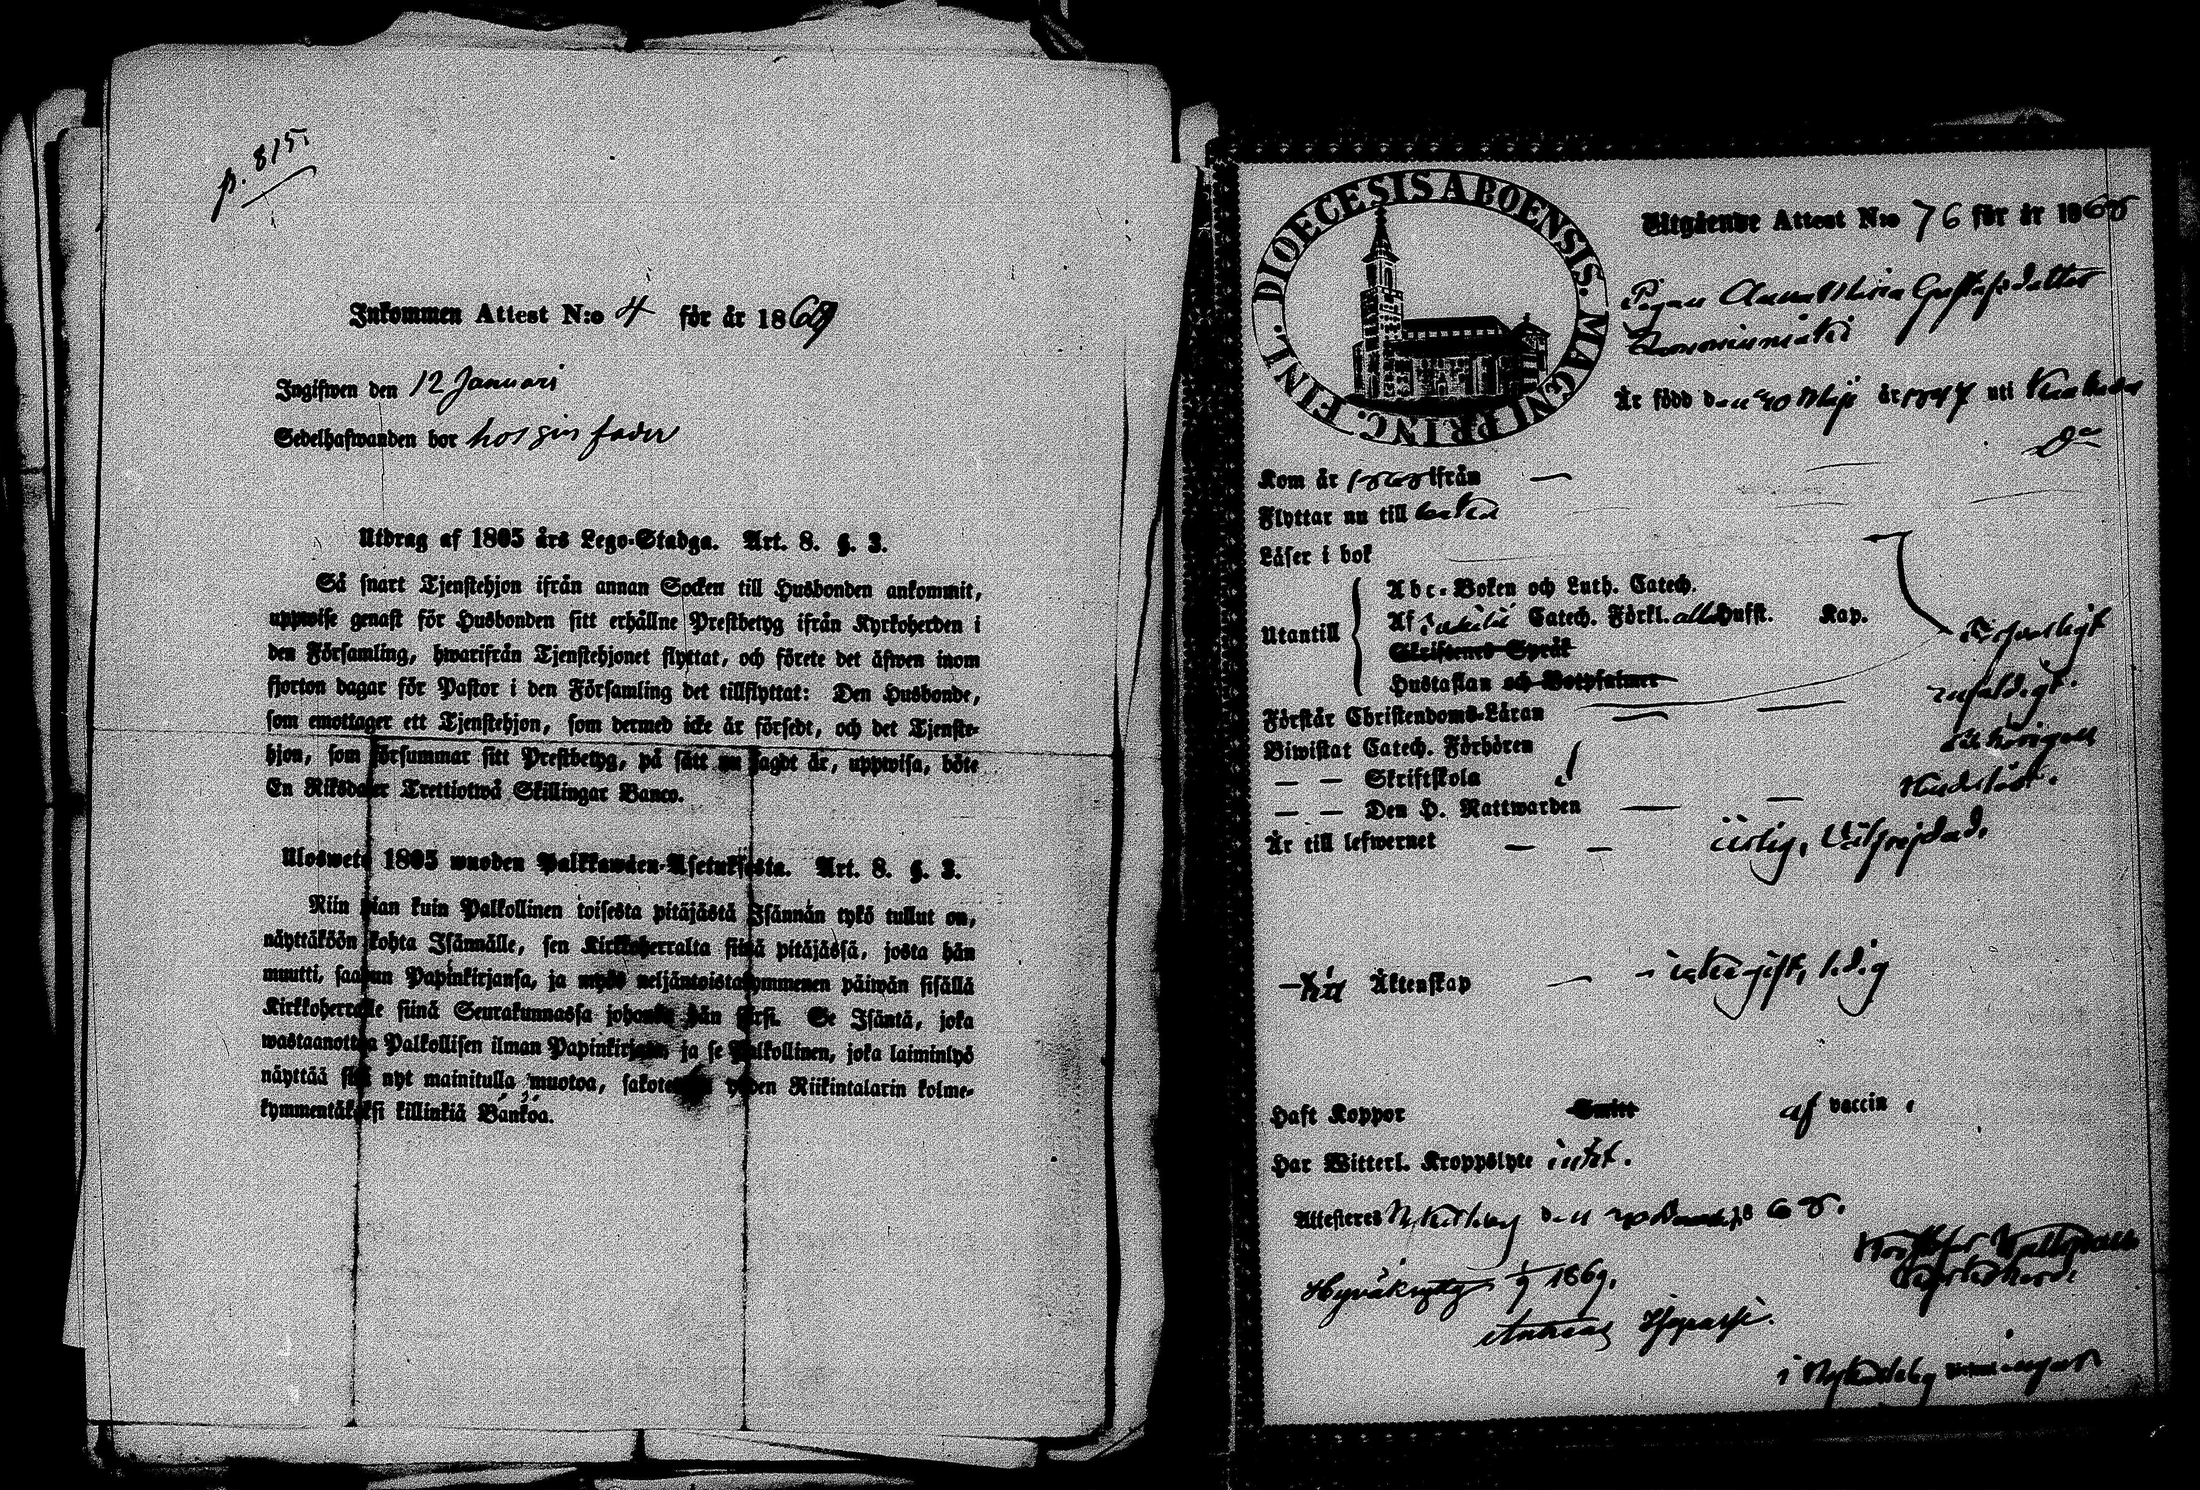 p. 815
Inkommen Attest N:o 4 för år 1869
Ingifwen den 12 Januari
Sedelhafwanden bor hos sin fader
Utdrag af 1805 års Lego-Stadga. Art. 8. §. 3.
Så snart Tjenstehjon ifrån annan Socken till Husbonden ankommit,
uppwise genast för Husbonden sitt erhållne Prestbetyg ifrån Kyrkoherden i
den Församling, hwarifrån Tjenstehjonet flyttat, och förete det äfwen inom
fjorton dagar för Pastor i den Församling det tillflyttat: Den Husbonde,
som emottager ett Tjenstehjon, som dermed icke är försedt, och det Tjenste-
hjon, som försummar sitt Prestbetyg, på sätt nu sagdt är, uppwisa, böte
En Riksdaler Trettiotwå Skillingar Banco.
Ulosweto 1805 wuoden Palkkawäen-Asetuksesta. Art. 8. §. 3.
Niin pian kuin Palkollinen toisesta pitäjästä Isännän tykö tullut on,
näyttäköön kohta Isännälle, sen Kirkkoherralta siinä pitäjässä, josta hän
muutti, saadun Papinkirjansa, ja myös neljäntoistakymmenen päiwän sisällä
Kirkkoherralle siinä Seurakunnassa johonka hän siirsi. Se Isäntä, joka
wastaanottaa Palkollisen ilman Papinkirjata, ja se Palkollinen, joka laiminlyö
näyttää sitä nyt mainitulla muotoa, sakotetaan yhden Riikintalarin kolme-
kymmentäkaksi killinkiä Bankoa.
DIOECESIS ABOENSIS. MAGNI PRINC. FINL.
Utgående Attest N:o 76 för år 1868
Pigan Anna Maria Gustafsdotter
Är född den 20 Maji år 1847 uti
Kom år 1868 ifrån —
Flyttar nu till
Läser i bok
Abc-Boken och Luth. Catech.
Utantill Af Catech. Förkl. alla Hufst. Kap.
Skriftenes Språk
Hustaflan och Botpsalmer
Förstår Christendoms-Läran — —
Biwistat Catech. Förhören
— — Skriftskola
— — Den H. Nattwarden — —
Är till lefwernet — — ärlig,
Äktenskap — ledig
Haft Koppor Smitt af vaccin.
Har Witterl. Kroppslyte intet.
Attesteres Nykyrkoby den 1868.
Hyväksytty 1/9 1869.
Andreas
i